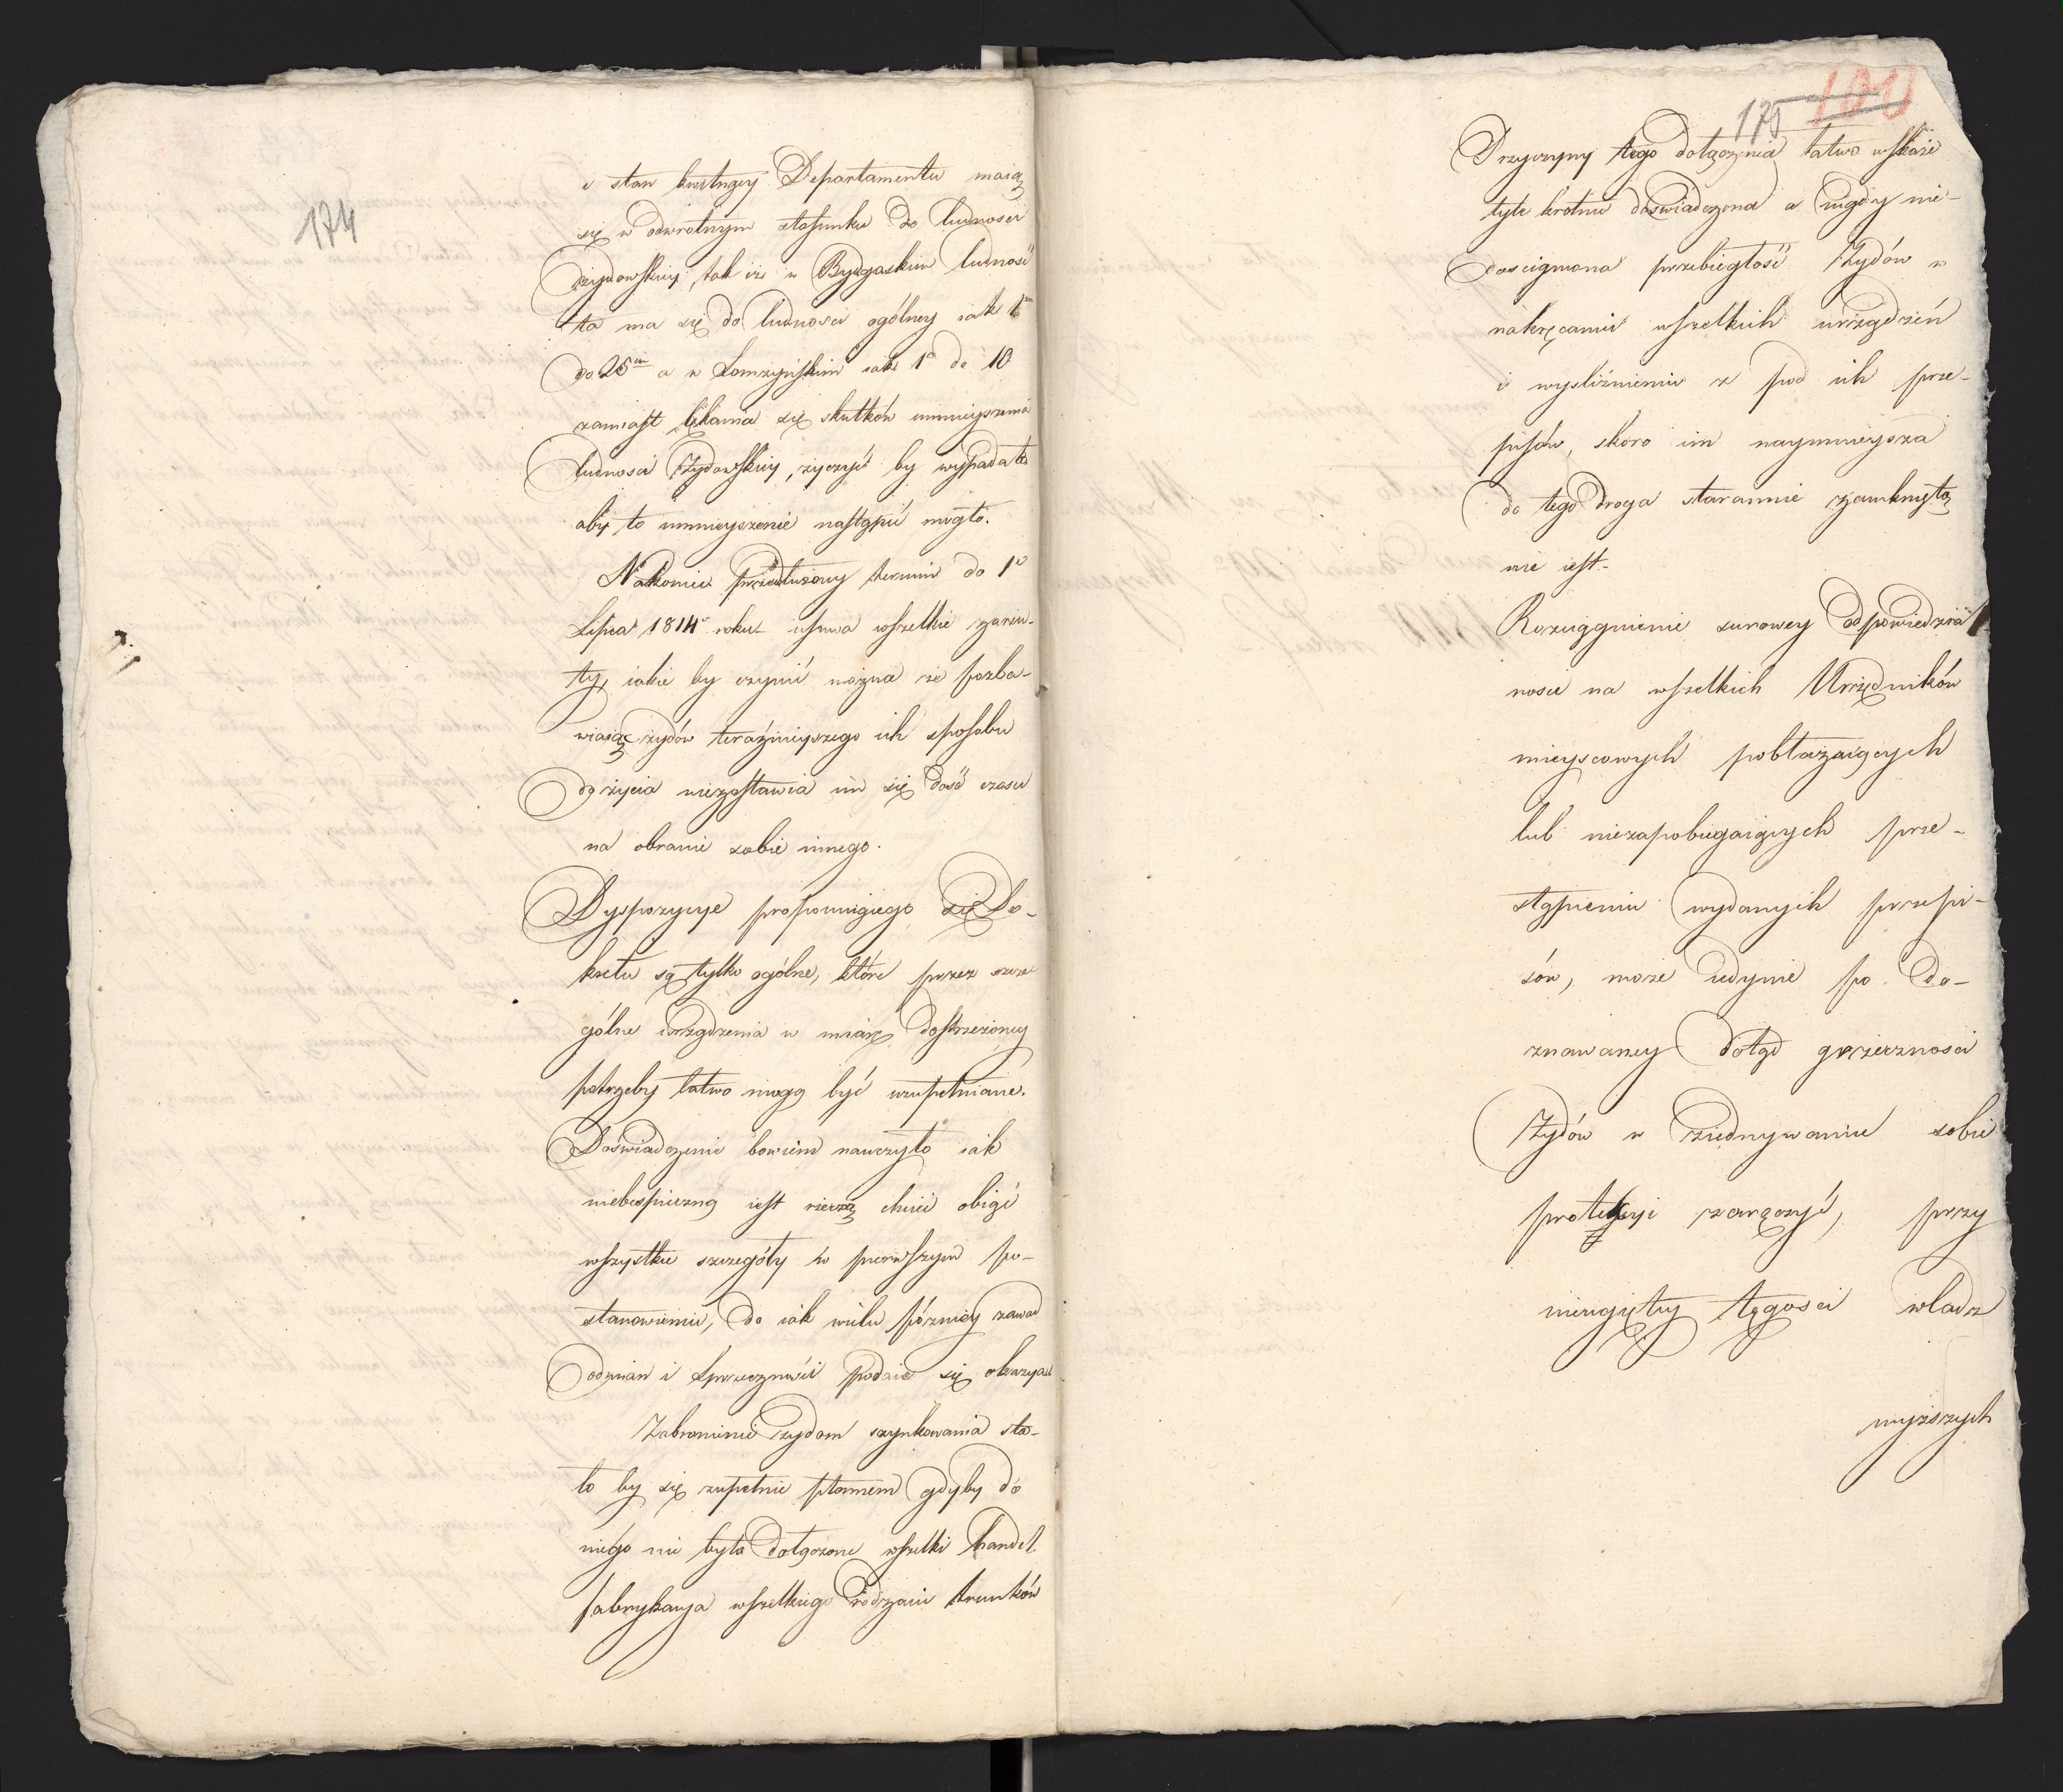 174
i stan kwitnący Departamentu maią
się w odwrotnym stosunku do ludnosci
żydowskiey, tak iż w Bydgoskim ludność
ta ma się do ludnosci ogólney iak 1
do 25 a w Łomżyńskim iak 1 do 10
zamiast lękania się skutków umnieyszenia
ludnosci Żydowskiey, życzyć by wypadało
aby to umnieyszenie nastąpić mogło.
Nakoniec przedłużony termin do 1º
Lipca 1814 roku usuwa wszelkie zarzu-
ty, iakie by czynić można że pozba-
wiaiąc żydów teraźnieyszego ich sposobu
do życia niezostawia im się dość czasu
na obranie sobie innego.
Dyspozycye proponuiącego się De-
kretu są tylko ogólne, które przez szcze
gólne urządzenia w miarę dostrzeżoney
potrzeby łatwo mogą być uzupełniane.
Doświadczenie bowiem nauczyło iak
niebespieczną iest rzeczą chcieć obiąć
wszystkie szczegóły w pierwszym po-
stanowieniu, do iak wielu pózniey zawad
odmian i sprzeczności podaie się okazya
Zabronienie żydom szynkowania sta-
ło by się zupełnie płonnem gdyby do
niego nie było dołączone wszelki handel
fabrykacya wszelkiego rodzaiu trunków
175 101
Przyczyny tego dołączenia łatwo wskaże
tyle krotnie doświadczona a nigdy nie-
doscigniona przebiegłość Żydów w
nakręcaniu wszelkich urządzeń
i wysliźnieniu z pod ich prze-
pisów, skoro im naymnieysza
do tego droga starannie zamkniętą
nie iest.
Rozciągnienie surowey odpowiedzial
nosci na wszelkich Urzędników
mieyscowych pobłażaiących
lub niezapobiegaiących prze-
stąpieniu wydanych przepi-
sów, może iedynie po do-
znawaney dotąd grzecznosci
Żydów w ziednywaniu sobie
protekcyi zaręczyć, przy
nieugiętey tęgosci władz
wyższych